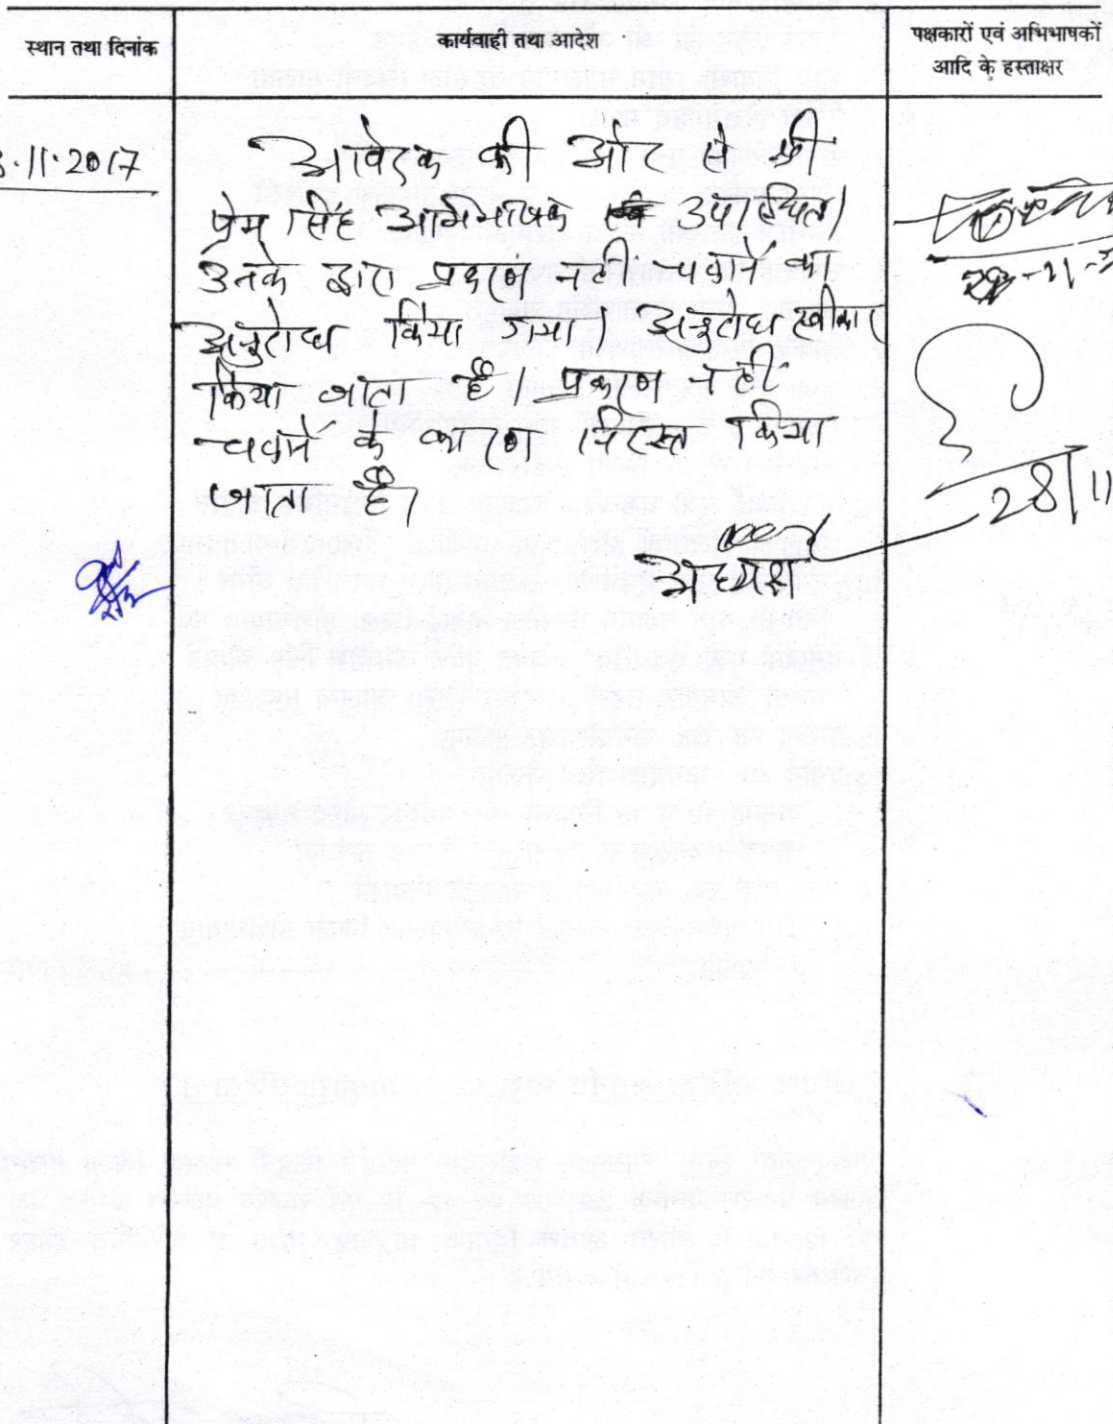 स्थान तथा दिनांक
कार्यवाही तथा आदेश
पक्षकारों एवं अभिभाषकों
आदि के हस्ताक्षर
8.11.2017
आवेदक की ओर से श्री
प्रेम सिंह अभिभाषक उपस्थित।
उनके द्वारा प्रकरण नहीं चलाने का
अनुरोध किया गया। अनुरोध स्वीकार
किया जाता है। प्रकरण नहीं
चलाने के कारण निरस्त किया
जाता है।
अध्यक्ष
28/11